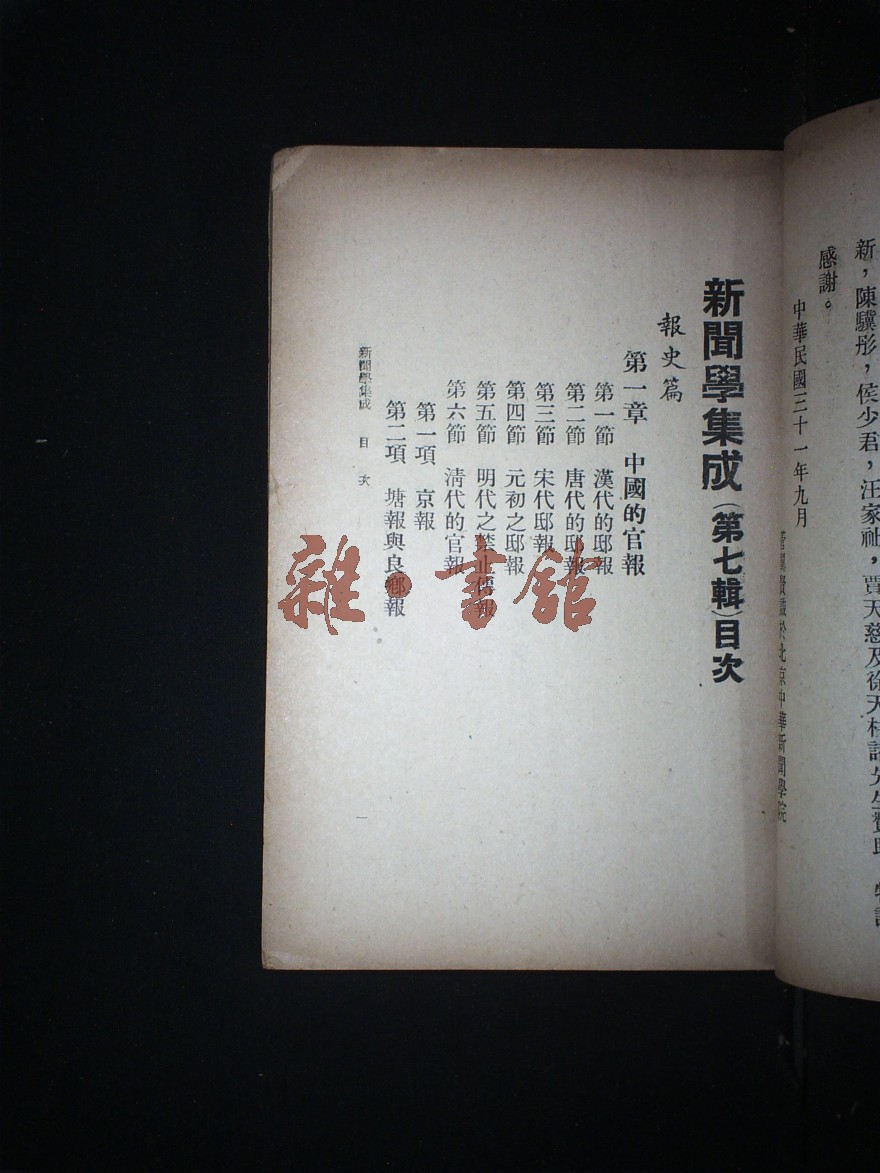 新，陳驥彤，侯少君，汪家祉，賈天慈及徐天桂諸先生贊助
感謝。
中華民國三十一年九月
管翼賢識於北京中華新聞學院
新聞學集成（第七輯）目次
報史篇
第一章　中國的官報
第一節　漢代的邸報
第二節　唐代的邸報
第三節　宋代邸報
第四節　元初之邸報
第五節　明代之禁止傳報
第六節　清代的官報
第一項　京報
第二項　塘報與良鄉報
新聞學集成　目次
一
雜·書館